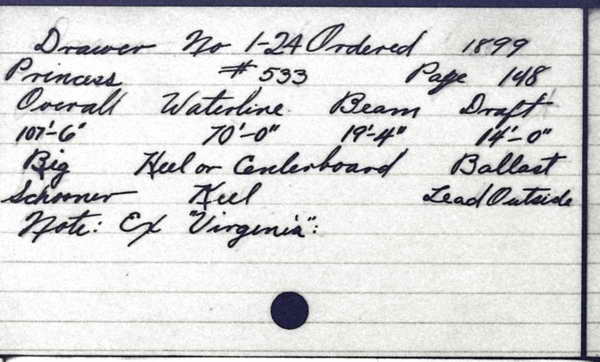 Drawer No 1-24 Ordered 1899
Princess #533 Page 148
Overall Waterline Beam Draft
107'-6" 70'-0" 19'-4" 14'-0"
Rig Keel or Centerboard Ballast
Schooner Keel Lead Outside
Note: Ex "Virginia":